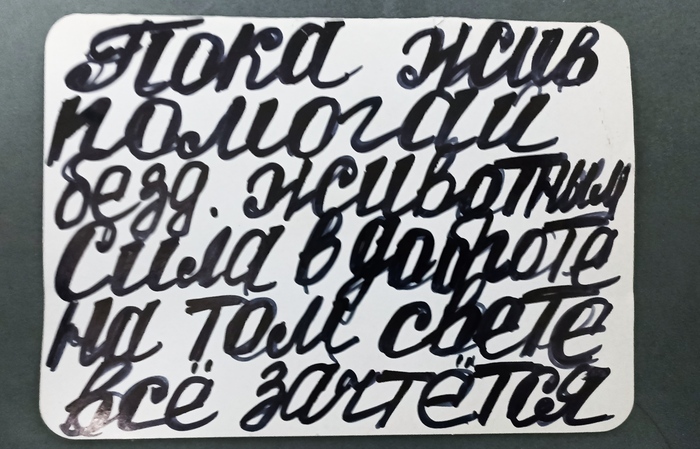 Пока жив
помогай
безд. животным
Сила в доброте
на том свете
всё зачтётся